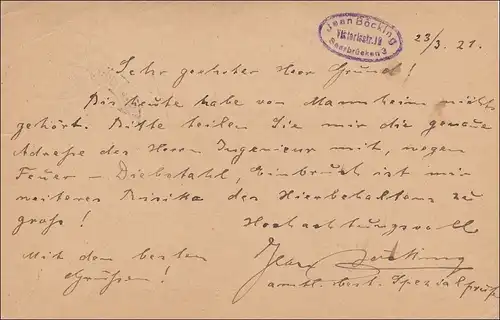 Jean Böcking
Viktoriastr. 19
Saarbrücken 3
23/3. 21.
Sehr geehrter Herr Grund!
Bis heute habe von Mannheim nichts
gehört. Bitte teilen Sie mir die genaue
Adresse des Herrn Ingenieur mit, wegen
Feuer – Diebstahl, Einbruch ist mir
weiteres Risiko des Hierbehaltens zu
groß!
Hochachtungsvoll
Mit den besten
Grüßen!
Jean Böcking
amtl. best. Spezial